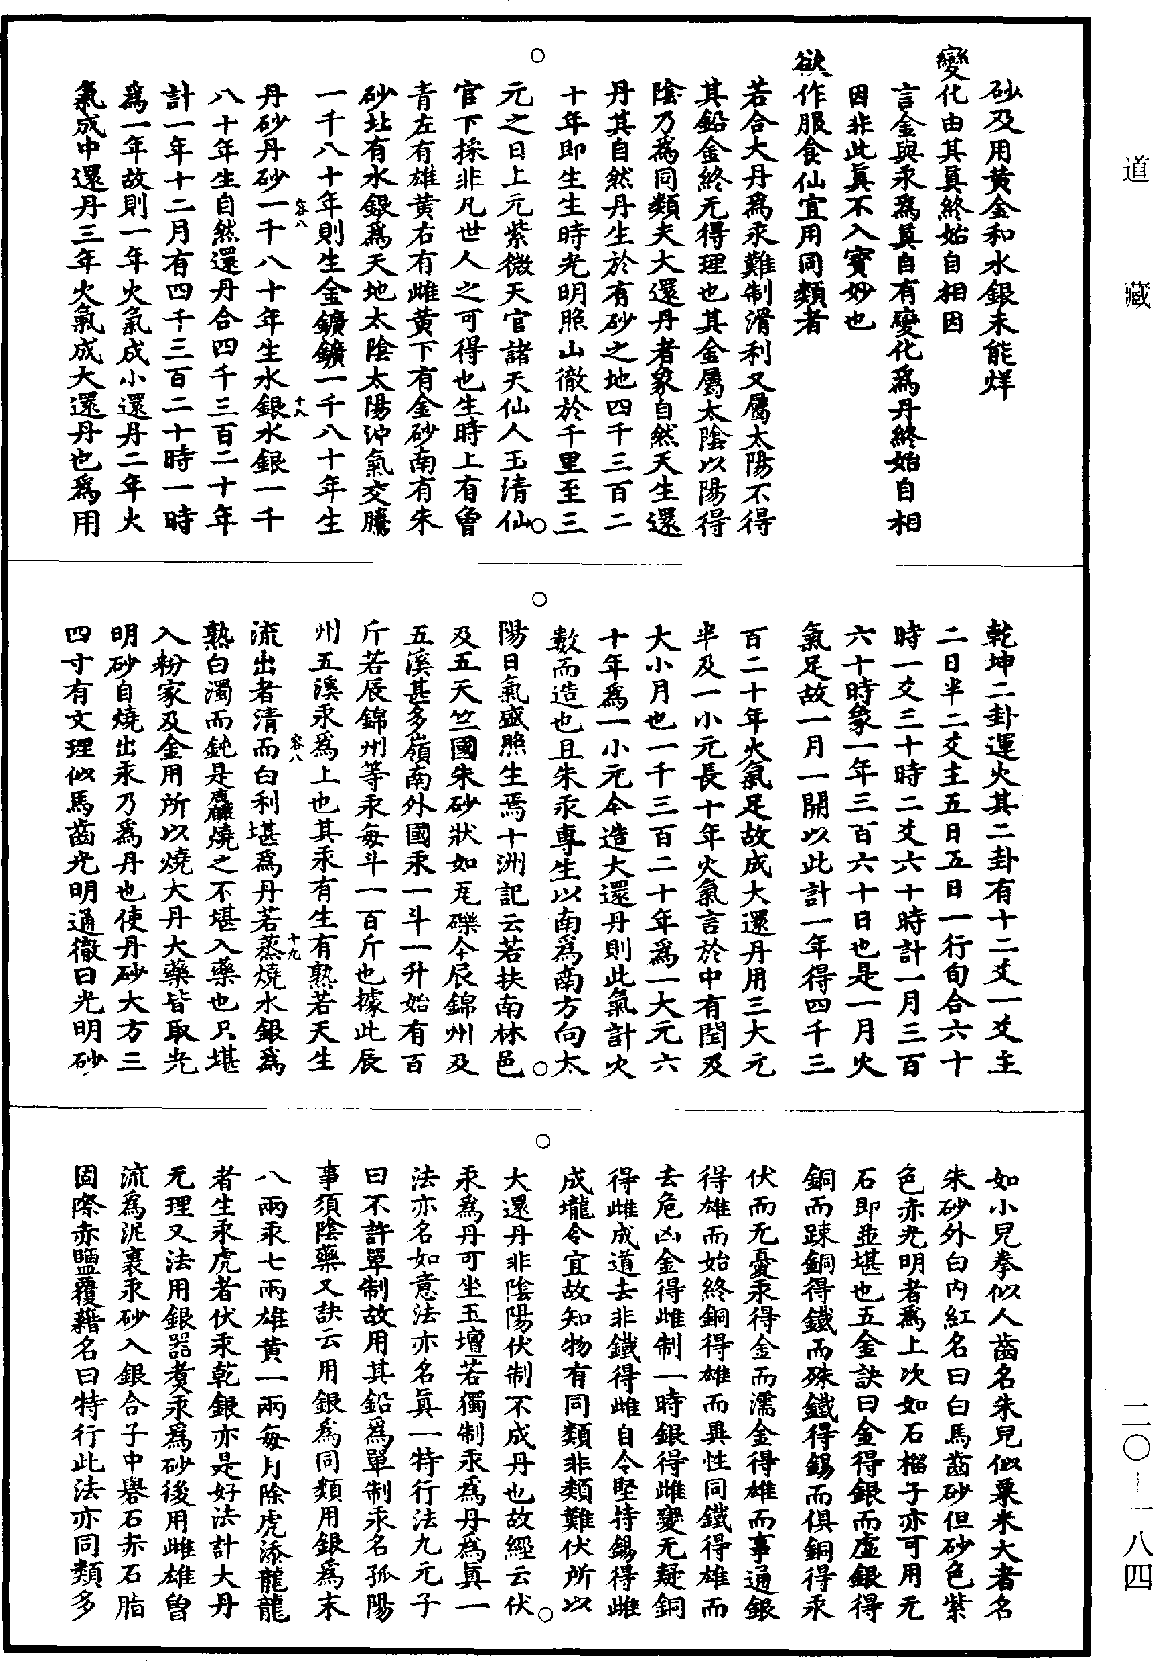 道藏
砂及用黃金和水銀未能烊
變化由其真終始自相因
言金與汞為真自有變化為丹終始自相
因非此真不入寶妙也
欲作服食仙宜用同類者
若合大丹為汞難制滑利又屬太陽不得
其鉛金終无得理也其金屬太陰以陽得
陰乃為同類夫大還丹者象自然天生還
丹其自然丹生於有砂之地四千三百二
十年即生生時光明照山徹於千里至三
元之日上元紫微天官諸天仙人玉清仙
官下採非凡世人之可得也生時上有曾
青左有雄黃右有雌黃下有金砂南有朱
砂北有水銀為天地太陰太陽沖氣交騰
一千八十年則生金鑛鑛一千八十年生
容八 十八
丹砂丹砂一千八十年生水銀水銀一千
八十年生自然還丹合四千三百二十年
計一年十二月有四千三百二十時一時
為一年故則一年火氣成小還丹二年火
氣成中還丹三年火氣成大還丹也為用
乾坤二卦運火其二卦有十二爻一爻主
二日半二爻主五日五日一行旬合六十
時一爻三十時二爻六十時計一月三百
六十時象一年三百六十日也是一月火
氣足故一月一開以此計一年得四千三
百二十年火氣足故成大還丹用三大元
半及一小元長十年火氣言於中有閏及
大小月也一千三百二十年為一大元六
十年為一小元今造大還丹則此氣計火
數而造也且朱汞專生以南為南方向太
陽日氣盛照生焉十洲記云若扶南林邑
及五天竺國朱砂狀如瓦礫今辰錦州及
五溪甚多嶺南外國汞一斗一升始有百
斤若辰錦州等汞每斗一百斤也據此辰
州五溪汞為上也其汞有生有熟若天生
容八 十九
流出者清而白利堪為丹若蒸燒水銀為
熟白濁而鈍是麤燒之不堪入藥也只堪
入粉家及金用所以燒大丹大藥皆取光
明砂自燒出汞乃為丹也使丹砂大方三
四寸有文理似馬齒光明通徹曰光明砂
如小兒拳似人齒名朱兒似粟米大者名
朱砂外白內紅名曰白馬齒砂但砂色紫
色亦光明者為上次如石榴子亦可用元
石即並堪也五金訣曰金得銀而虛銀得
銅而踈銅得鐵而殊鐵得錫而俱銅得汞
伏而无憂汞得金而濡金得雄而事通銀
得雄而始終銅得雄而異性同鐵得雄而
去危凶金得雌制一時銀得雌變无疑銅
得雌成道去非鐵得雌自令堅持錫得雌
成壠令宜故知物有同類非類難伏所以
大還丹非陰陽伏制不成丹也故經云伏
汞為丹可坐玉壇若獨制汞為丹為真一
法亦名如意法亦名真一特行法九元子
曰不許單制故用其鉛為單制汞名孤陽
事須陰藥又訣云用銀為同類用銀為末
八兩汞七兩雄黃一兩每月除虎添龍龍
者生汞虎者伏汞乾銀亦是好法計大丹
无理又法用銀器煑汞為砂後用雌雄曾
流為泥裹汞砂入銀合子中礜石赤石脂
固際赤鹽覆藉名曰特行此法亦同類多
二〇—一八四